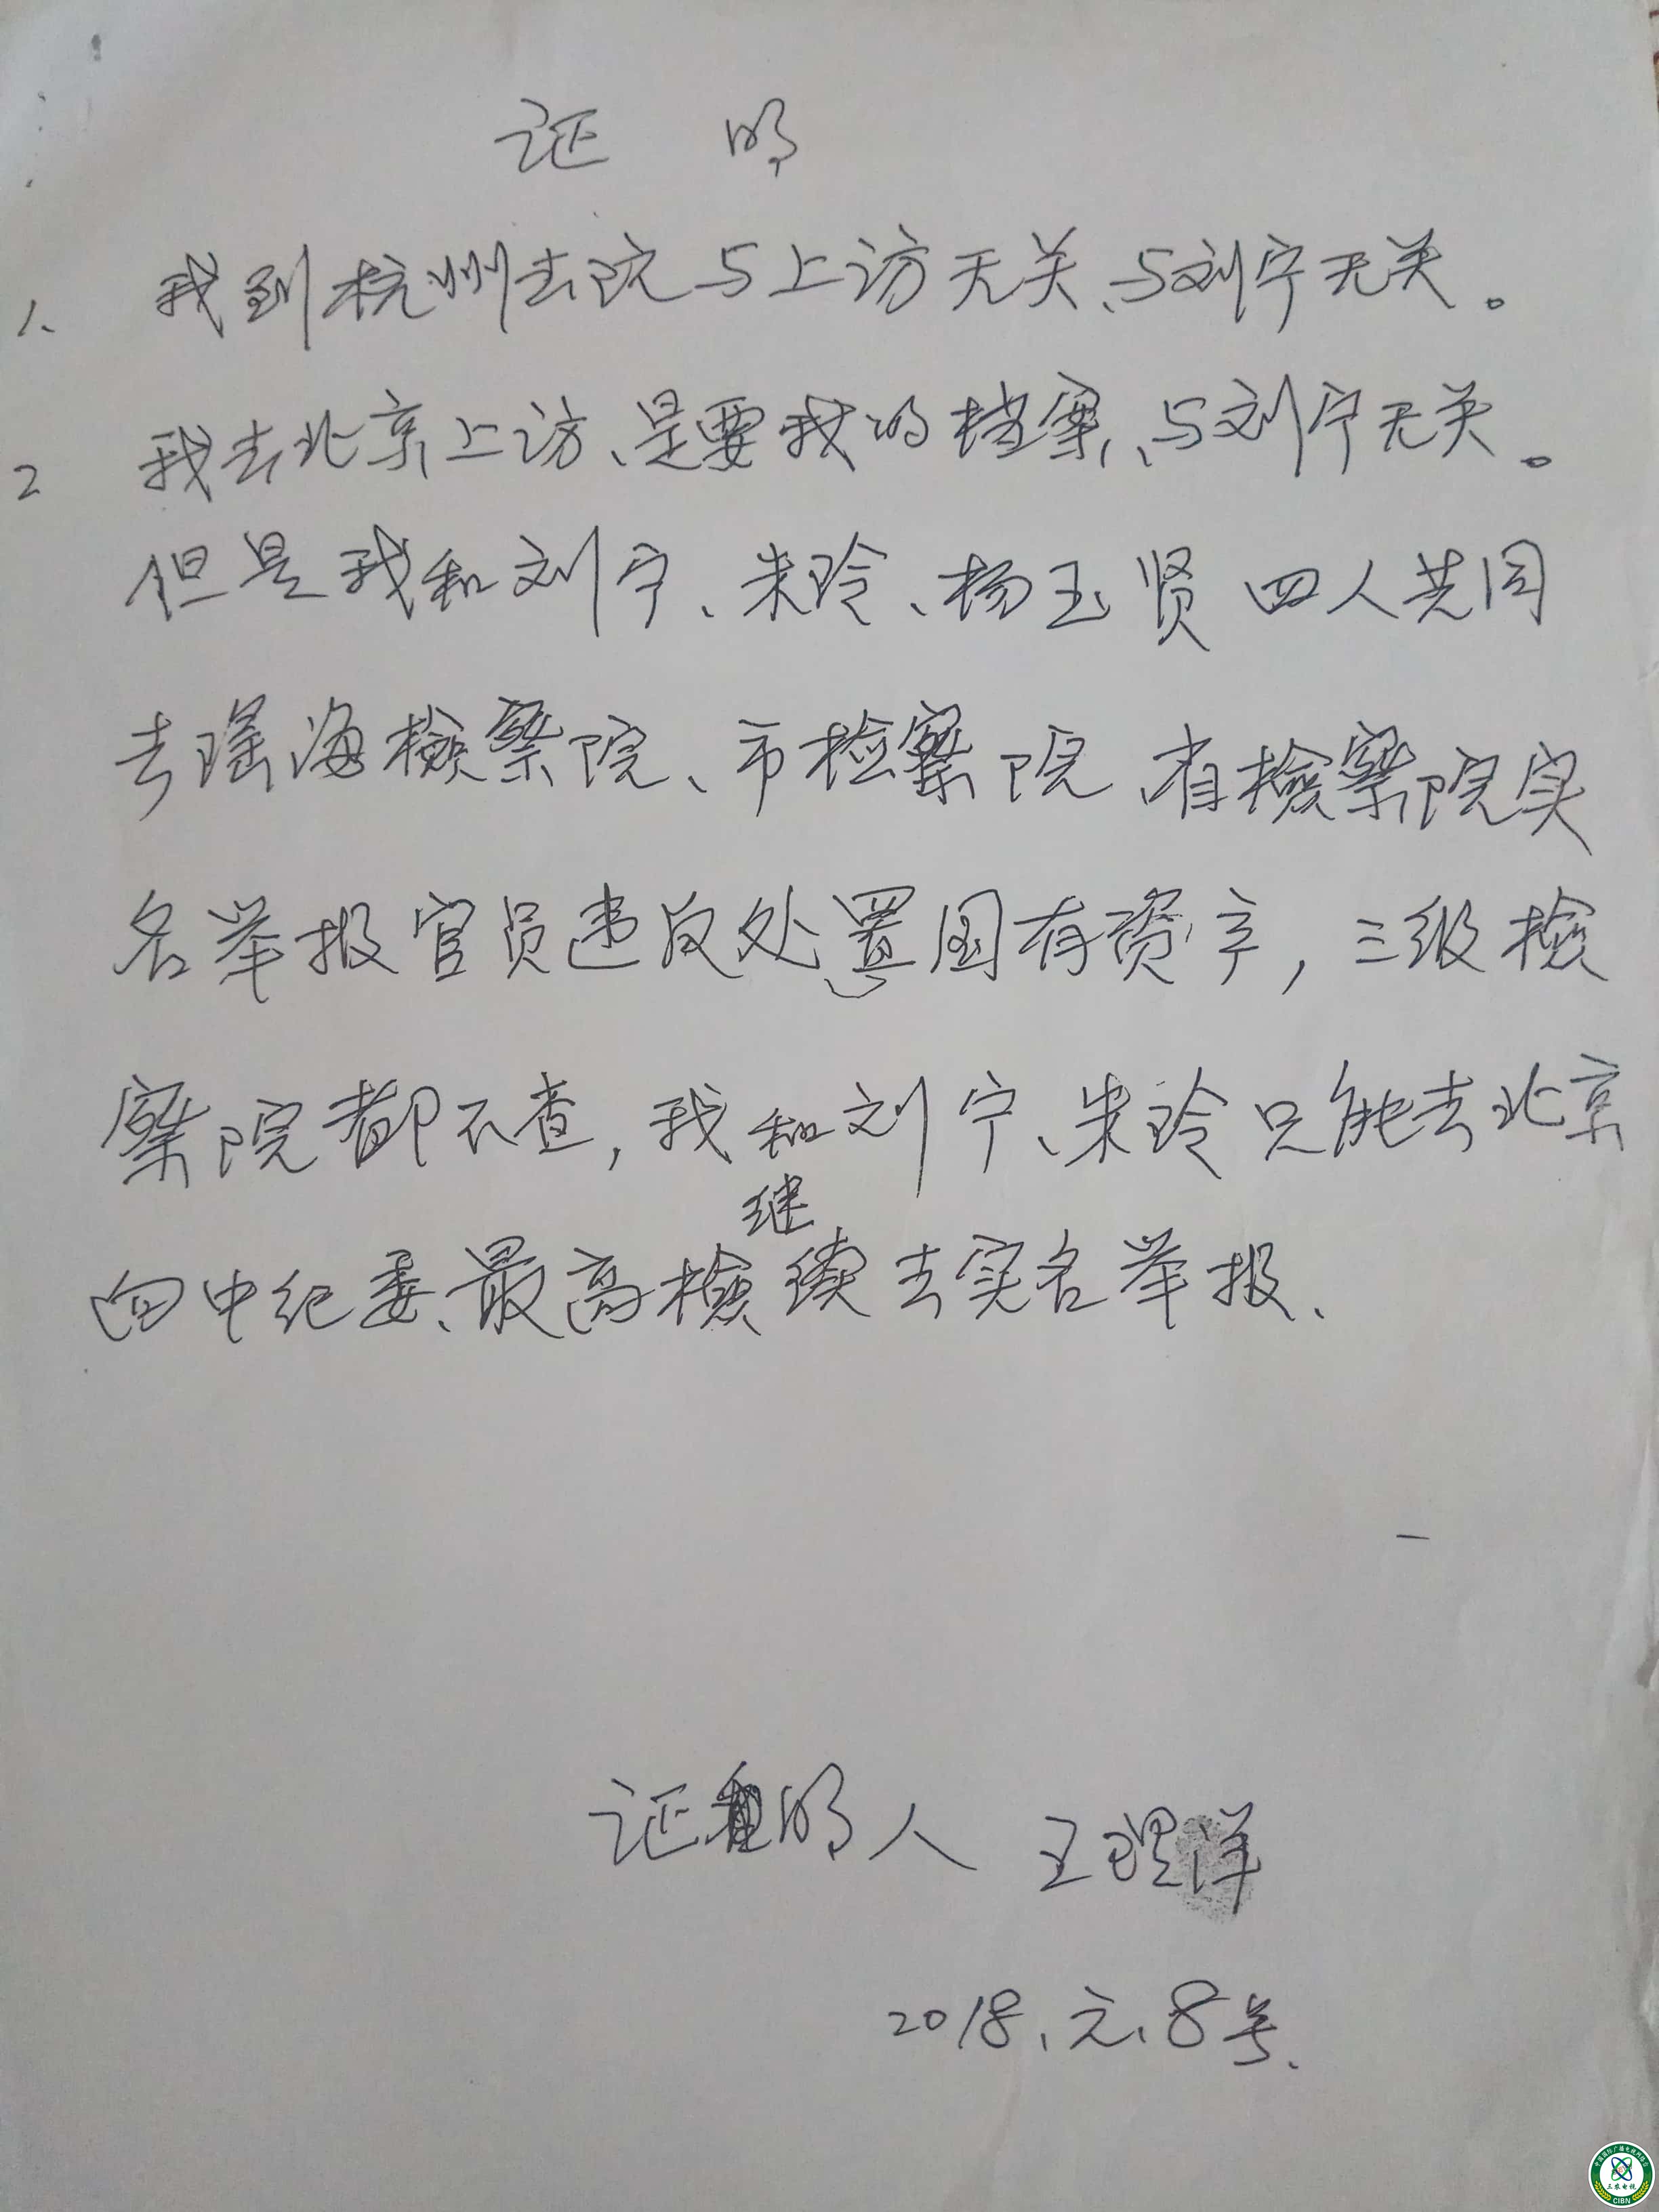 证 明
1、 我到杭州去玩与上访无关、与刘宁无关。
2 我去北京上访、是要我的档案、与刘宁无关。
但是我和刘宁、朱玲、杨玉贤四人共同
去瑶海檢察院、市检察院、省檢察院实
名举报官员违反处置国有资产,三级檢
察院都不查,我和刘宁、朱玲只能去北京
向中纪委、最高檢继续去实名举报、
证明人 王理洋
2018、元、8号、
CIBN